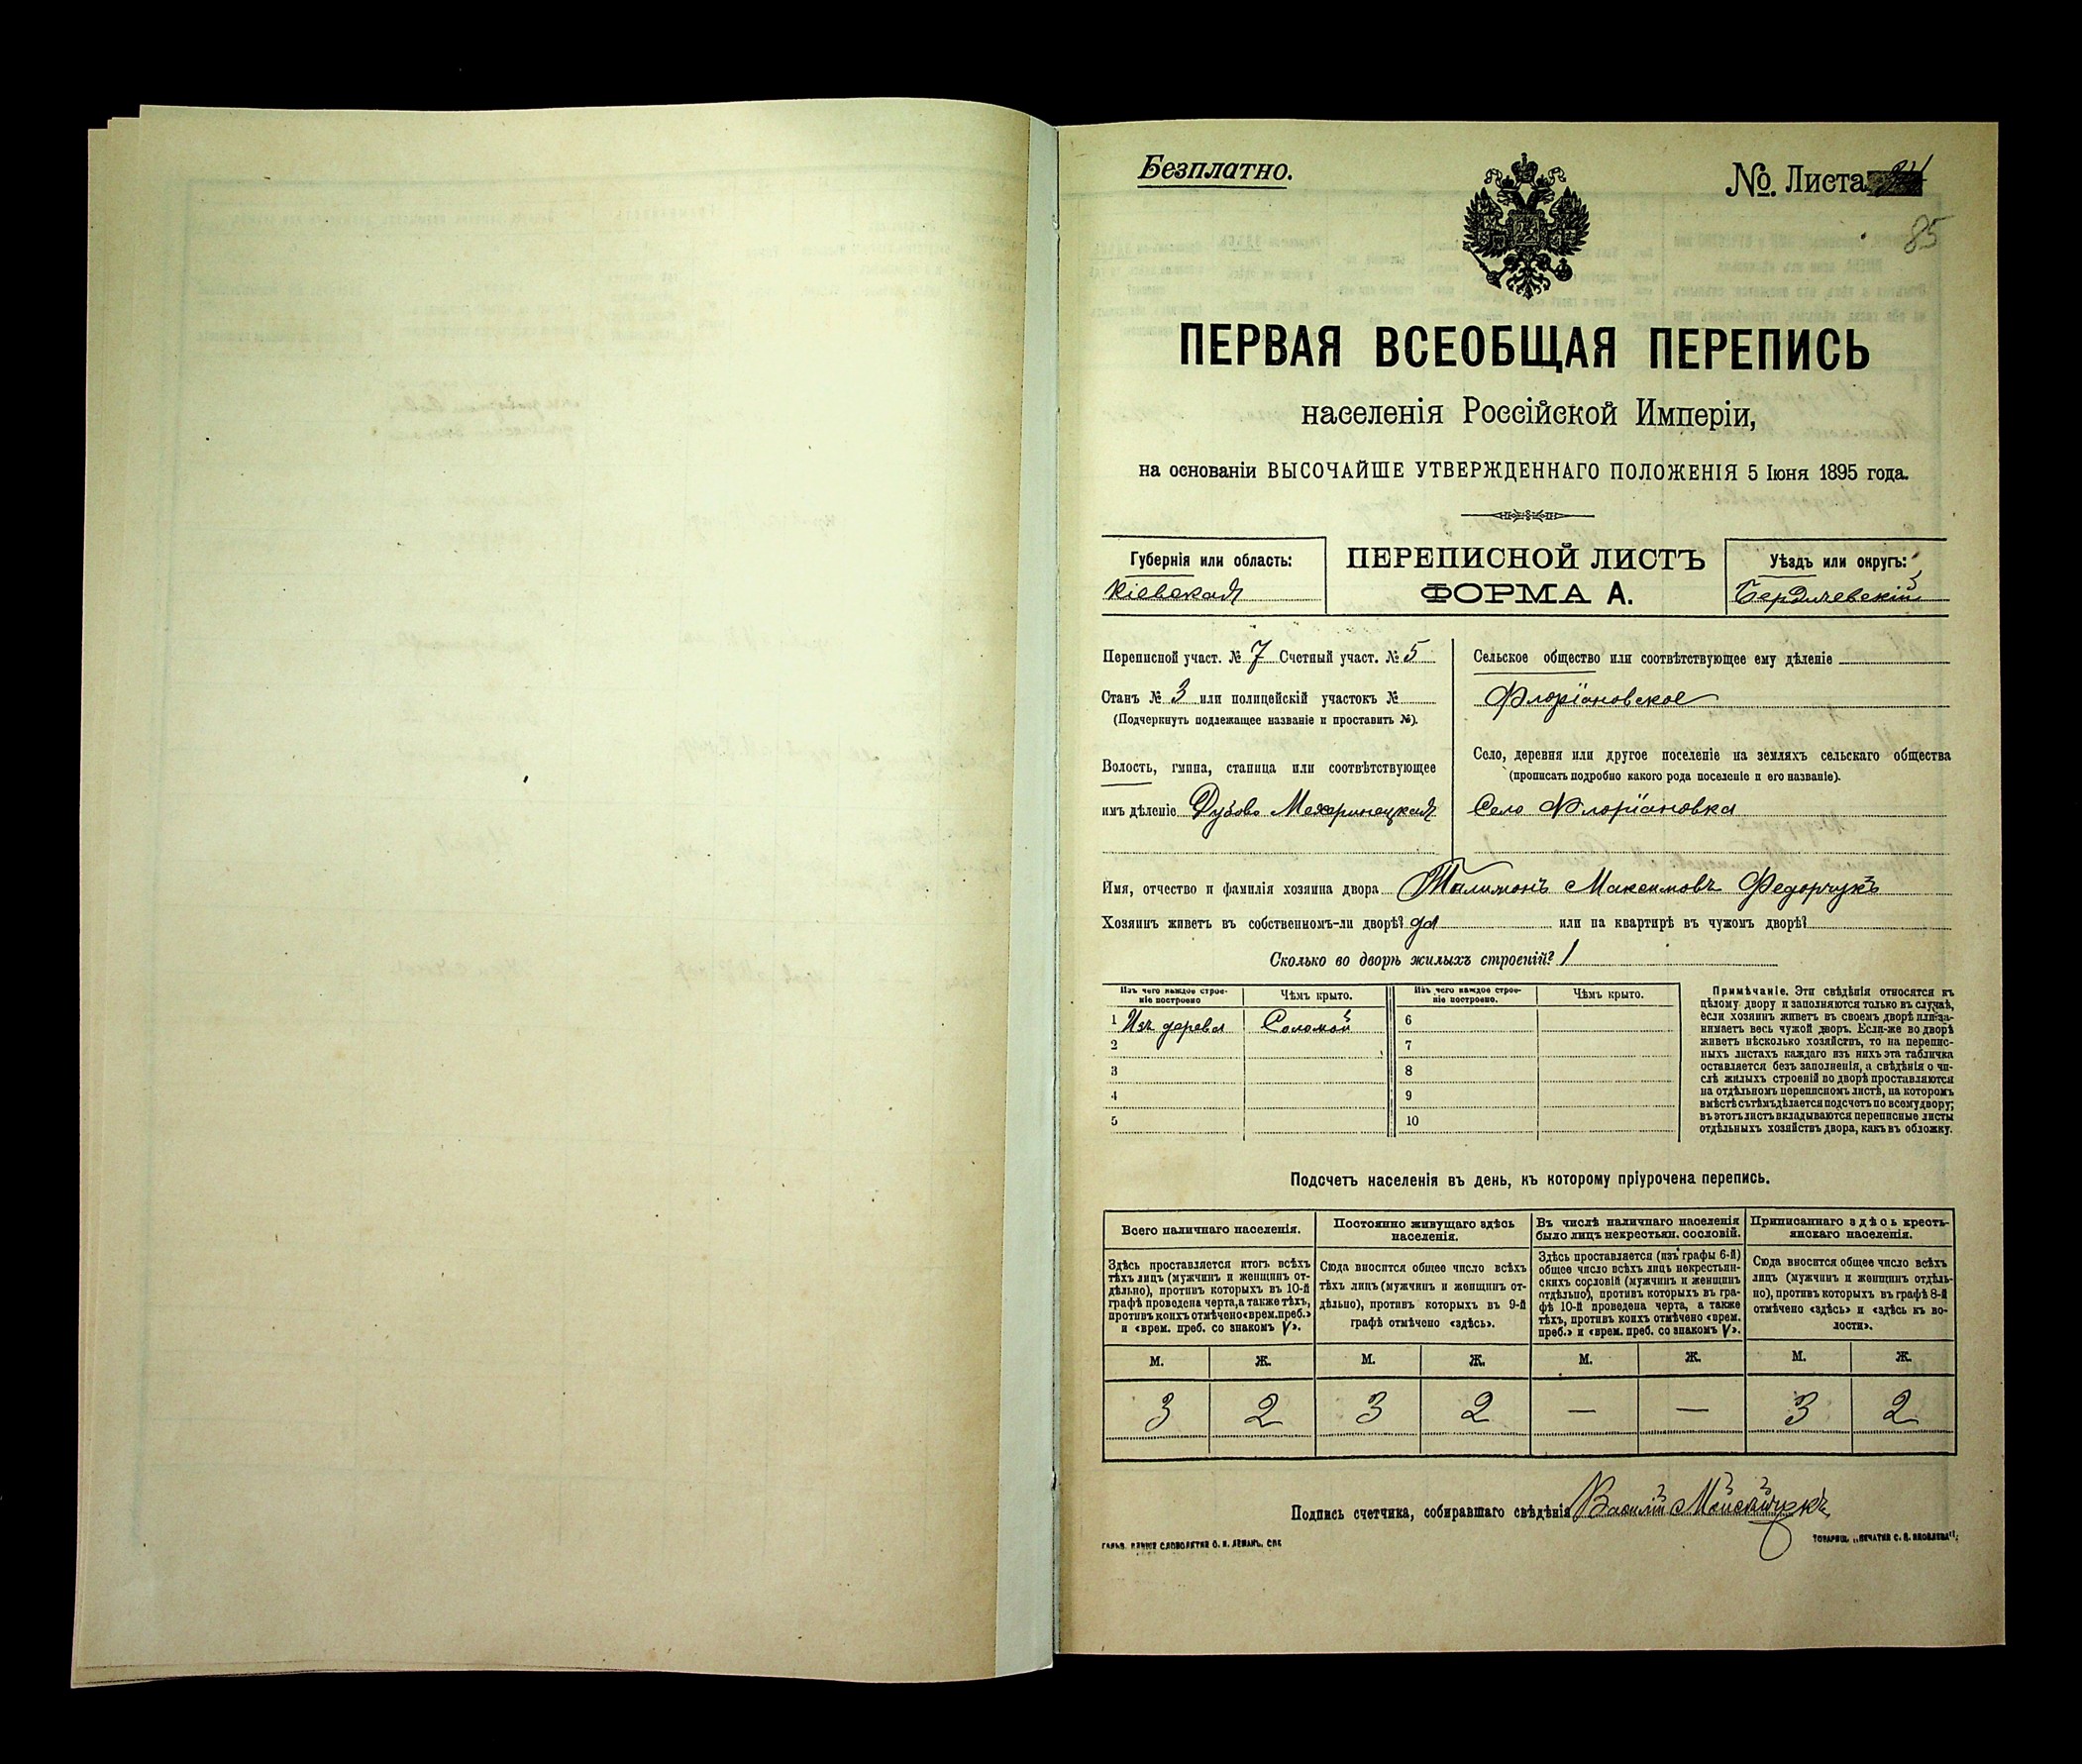 Безплатно.
№. Листа
85
ПЕРВАЯ ВСЕОБЩАЯ ПЕРЕПИСЬ
населенія Россійской Имперіи,
на основаніи ВЫСОЧАЙШЕ УТВЕРЖДЕННАГО ПОЛОЖЕНІЯ 5 Іюня 1895 года.
Губернія или область:
Кіевская
ПЕРЕПИСНОЙ ЛИСТЪ
ФОРМА А.
Уѣздъ или округъ:
Бердичевскій
Переписной участ. № 7 Счетный участ. № 5
Станъ № 3 или полицейскій участокъ №
(Подчеркнуть подлежащее названіе и проставить №).
Волость, гмина, станица или соотвѣтствующее
имъ дѣленіе Дубово Махаринецкая
Сельское общество или соотвѣтствующее ему дѣленіе
Флоріановское
Село, деревня или другое поселеніе на земляхъ сельскаго общества
(прописать подробно какого рода поселеніе и его названіе).
Село Флоріановка
Имя, отчество и фамилія хозяина двора Тилимонъ Максимовъ Федорчукъ
Хозяинъ живетъ въ собственномъ-ли дворѣ? да или на квартирѣ въ чужомъ дворѣ?
Сколько во дворѣ жилыхъ строеній? 1
Изъ чего каждое строе-
ніе построено
Чѣмъ крыто.
Изъ чего каждое строе-
ніе построено.
Чѣмъ крыто.
1 Изъ дерева Соломой 6
2 7
3 8
4 9
5 10
Примѣчаніе. Эти свѣдѣнія относятся къ
цѣлому двору и заполняются только въ случаѣ,
если хозяинъ живетъ въ своемъ дворѣ или за-
нимаетъ весь чужой дворъ. Если-же во дворѣ
живетъ нѣсколько хозяйствъ, то на перепис-
ныхъ листахъ каждаго изъ нихъ эта табличка
оставляется безъ заполненія, а свѣдѣнія о чи-
слѣ жилыхъ строеній во дворѣ проставляются
на отдѣльномъ переписномъ листѣ, на которомъ
вмѣстѣ съ тѣмъ дѣлается подсчетъ по всему двору;
въ этотъ листъ вкладываются переписные листы
отдѣльныхъ хозяйствъ двора, какъ въ обложку.
Подсчетъ населенія въ день, къ которому пріурочена перепись.
Всего наличнаго населенія.
Здѣсь проставляется итогъ всѣхъ
тѣхъ лицъ (мужчинъ и женщинъ от-
дѣльно), противъ которыхъ въ 10-й
графѣ проведена черта, а также тѣхъ,
противъ коихъ отмѣчено «врем. преб.»
и «врем. преб. со знакомъ V».
Постоянно живущаго здѣсь
населенія.
Сюда вносится общее число всѣхъ
тѣхъ лицъ (мужчинъ и женщинъ от-
дѣльно), противъ которыхъ въ 9-й
графѣ отмѣчено «здѣсь».
Въ числѣ наличнаго населенія
было лицъ некрестьян. сословій.
Здѣсь проставляется (изъ графы 6-й)
общее число всѣхъ лицъ некрестьян-
скихъ сословій (мужчинъ и женщинъ
отдѣльно), противъ которыхъ въ гра-
фѣ 10-й проведена черта, а также
тѣхъ, противъ коихъ отмѣчено «врем.
преб.» и «врем. преб. со знакомъ V».
Приписаннаго здѣсь кресть-
янскаго населенія.
Сюда вносится общее число всѣхъ
лицъ (мужчинъ и женщинъ отдѣль-
но), противъ которыхъ въ графѣ 8-й
отмѣчено «здѣсь» и «здѣсь къ во-
лости».
М. Ж. М. Ж. М. Ж. М. Ж.
3 2 3 2 — — 3 2
Подпись счетчика, собиравшаго свѣдѣнія Василій
ГАЛЬВ. КЛИШЕ СЛОВОЛИТНИ О. И. ЛЕМАНЪ, СПБ
ТОВАРИЩ. „ПЕЧАТНЯ С. П. ЯКОВЛЕВА“.